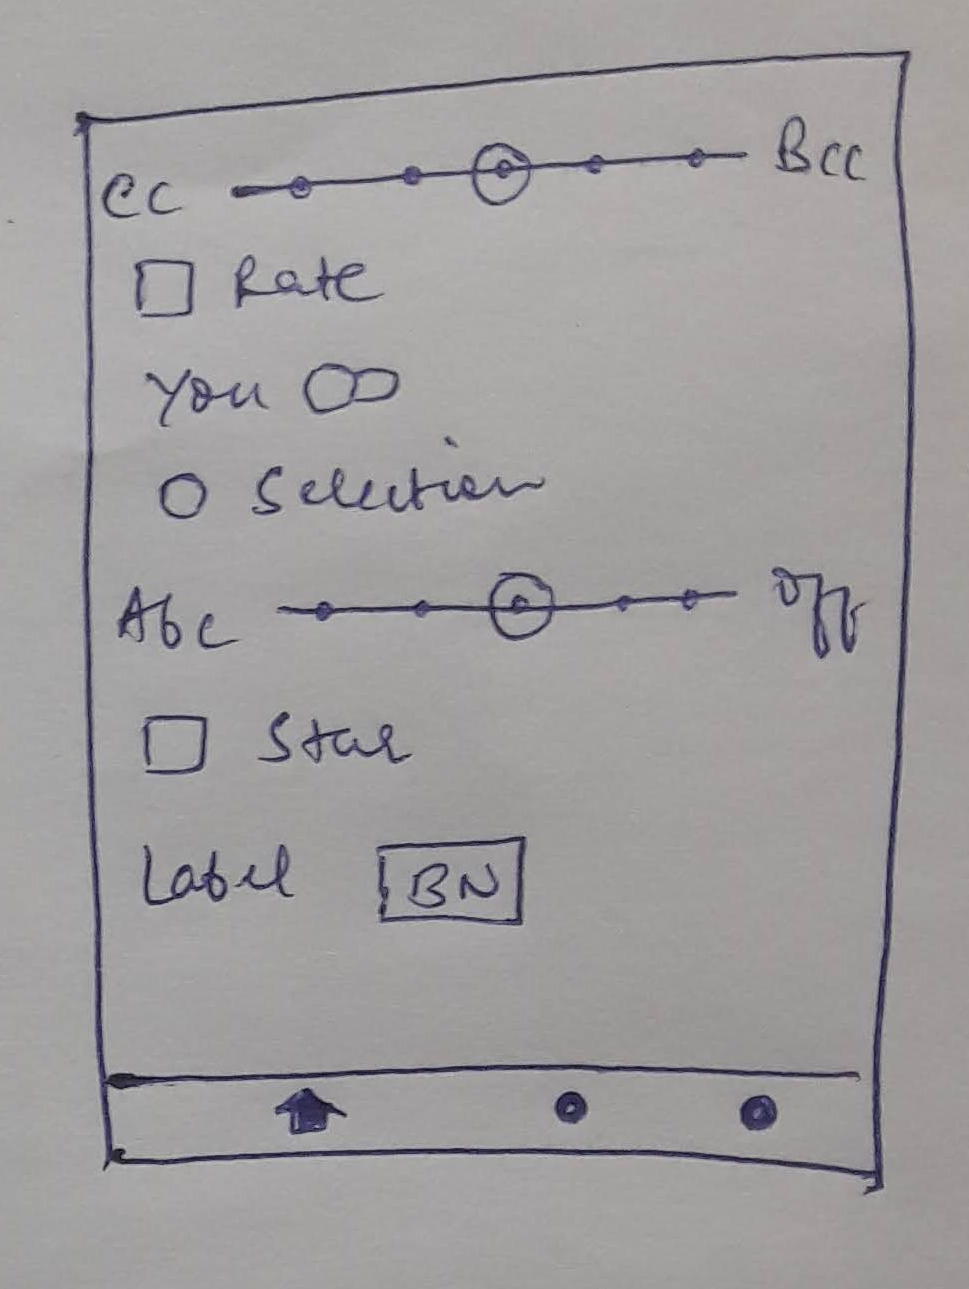 CC Bcc
Rate
You
Selection
Abc Off
Star
Label BN